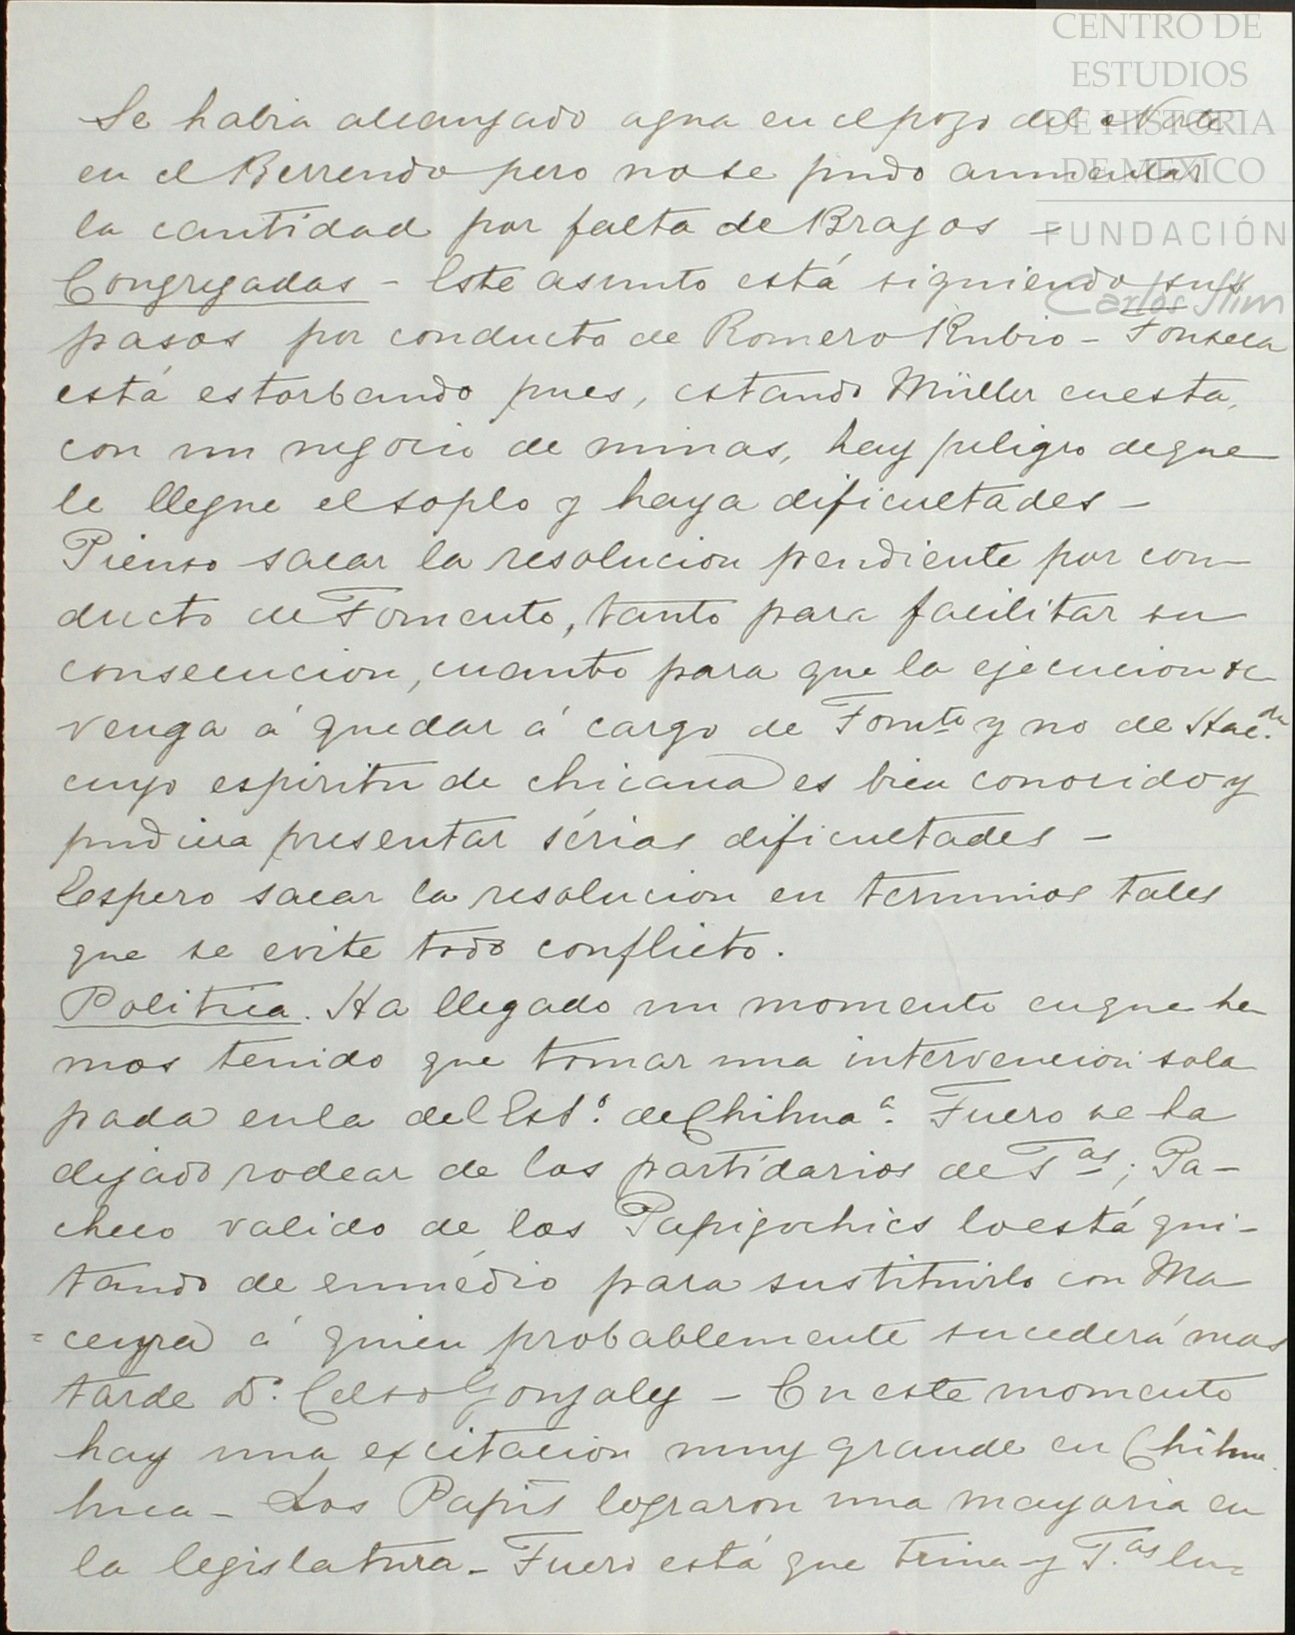 CENTRO DE
ESTUDIOS
DE HISTORIA
DE MÉXICO
FUNDACIÓN
Carlos Slim
Se habia alcanzado agua en el pozo del Norte
en el Berrendo pero no se pudo aumentar
la cantidad por falta de Brazos -
Congregadas - Este asunto está siguiendo sus
pasos por conducto de Romero Rubio - Fonseca
está estorbando pues, estando Müller en esta,
con un negocio de minas, hay peligro de que
le llegue el soplo y haya dificultades -
Pienso sacar la resolucion pendiente por con-
ducto de Fomento, tanto para facilitar su
consecucion, cuanto para que la ejecucion se
venga á quedar á cargo de Fomto y no de Hac.da
cuyo espiritu de chicana es bien conocido y
pudiera presentar sérias dificultades -
Espero sacar la resolucion en terminos tales
que se evite todo conflicto.
Politica. Ha llegado un momento en que he
mos tenido que tomar una intervencion sola
pada en la del Est.o de Chihua.a Fuero se ha
dejado rodear de los partidarios de T.as; Pa-
checo valido de los Papigochics lo está qui-
tando de enmédio para sustituirlo con Ma
=ceyra á quien probablemente sucederá mas
tarde D.n Celso Gonzalez - En este momento
hay una excitacion muy grande en Chihua
hua - Los Papis lograron una mayoria en
la legislatura - Fuero está que trina y T.as lu=